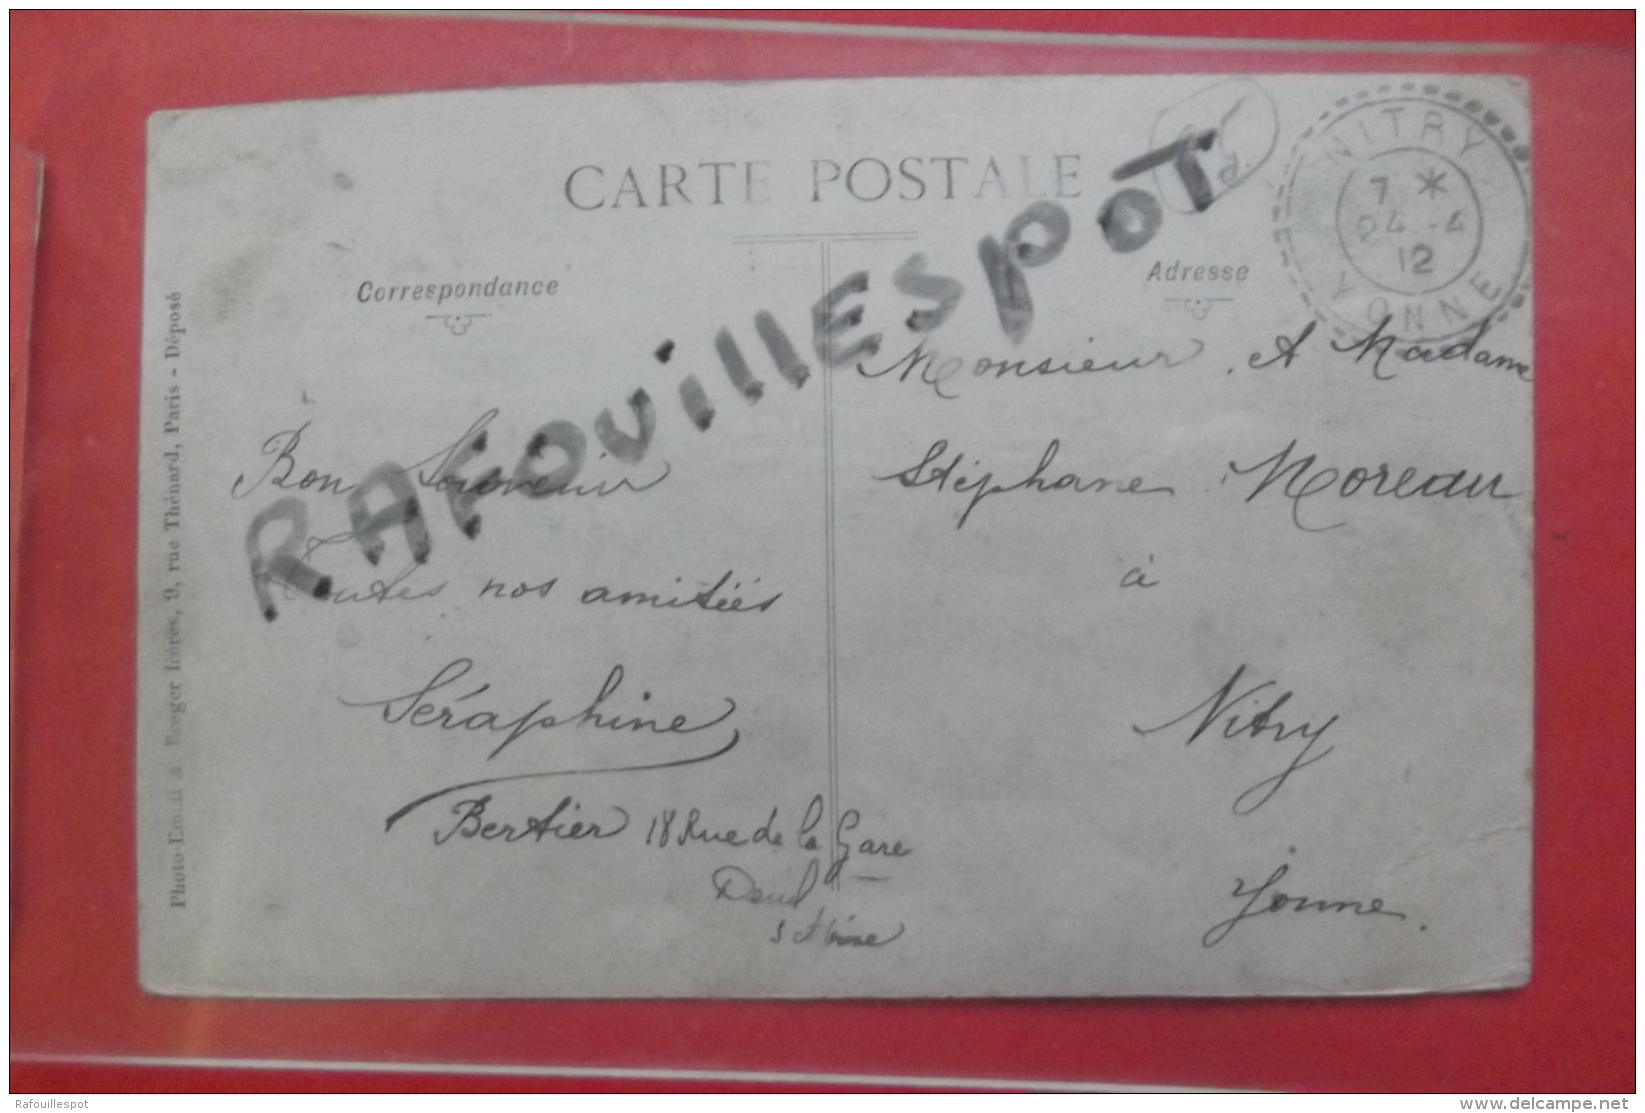 CARTE POSTALE
NITRY
7 *
24 - 4
12
YONNE
Correspondance
Adresse
RAFOUILLESPOT
Photo-Email A. Breger frères, 9, rue Thénard, Paris - Déposé
Bon Souvenir
Toutes nos amitiés
Séraphine
Bertier 18 Rue de la Gare
Deuil
S et Oise
Monsieur et Madame
Stéphane Moreau
à
Nitry
Yonne.
Rafouillespot
www.delcampe.net